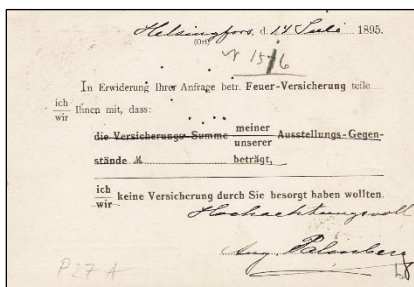 Helsingfors, d. 14 Juli 1895.
(Ort)
№ 1516
In Erwiderung Ihrer Anfrage betr. Feuer-Versicherung teile
ich
wir Ihnen mit, dass:
die Versicherungs-Summe meiner
unserer Ausstellungs-Gegen-
stände M. beträgt,
ich
wir keine Versicherung durch Sie besorgt haben wollten.
Hochachtungsvoll
Aug. Palmberg
P27 A